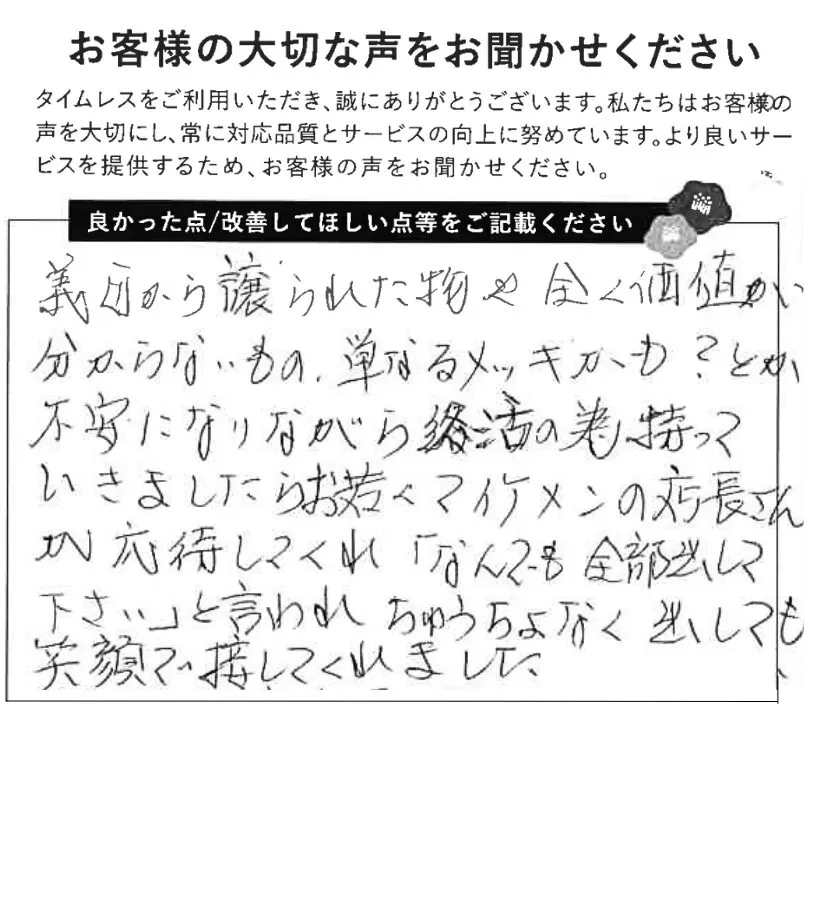 お客様の大切な声をお聞かせください
タイムレスをご利用いただき、誠にありがとうございます。私たちはお客様の
声を大切にし、常に対応品質とサービスの向上に努めています。より良いサー
ビスを提供するため、お客様の声をお聞かせください。
良かった点/改善してほしい点等をご記載ください
義母から譲られた物や全く価値が
分からないもの、単なるメッキかも?とか
不安になりながら終活の為持って
いきましたらお若くてイケメンの店長さん
が応待してくれ「なんでも全部出して
下さい」と言われちゅうちょなく出しても
笑顔で接してくれました